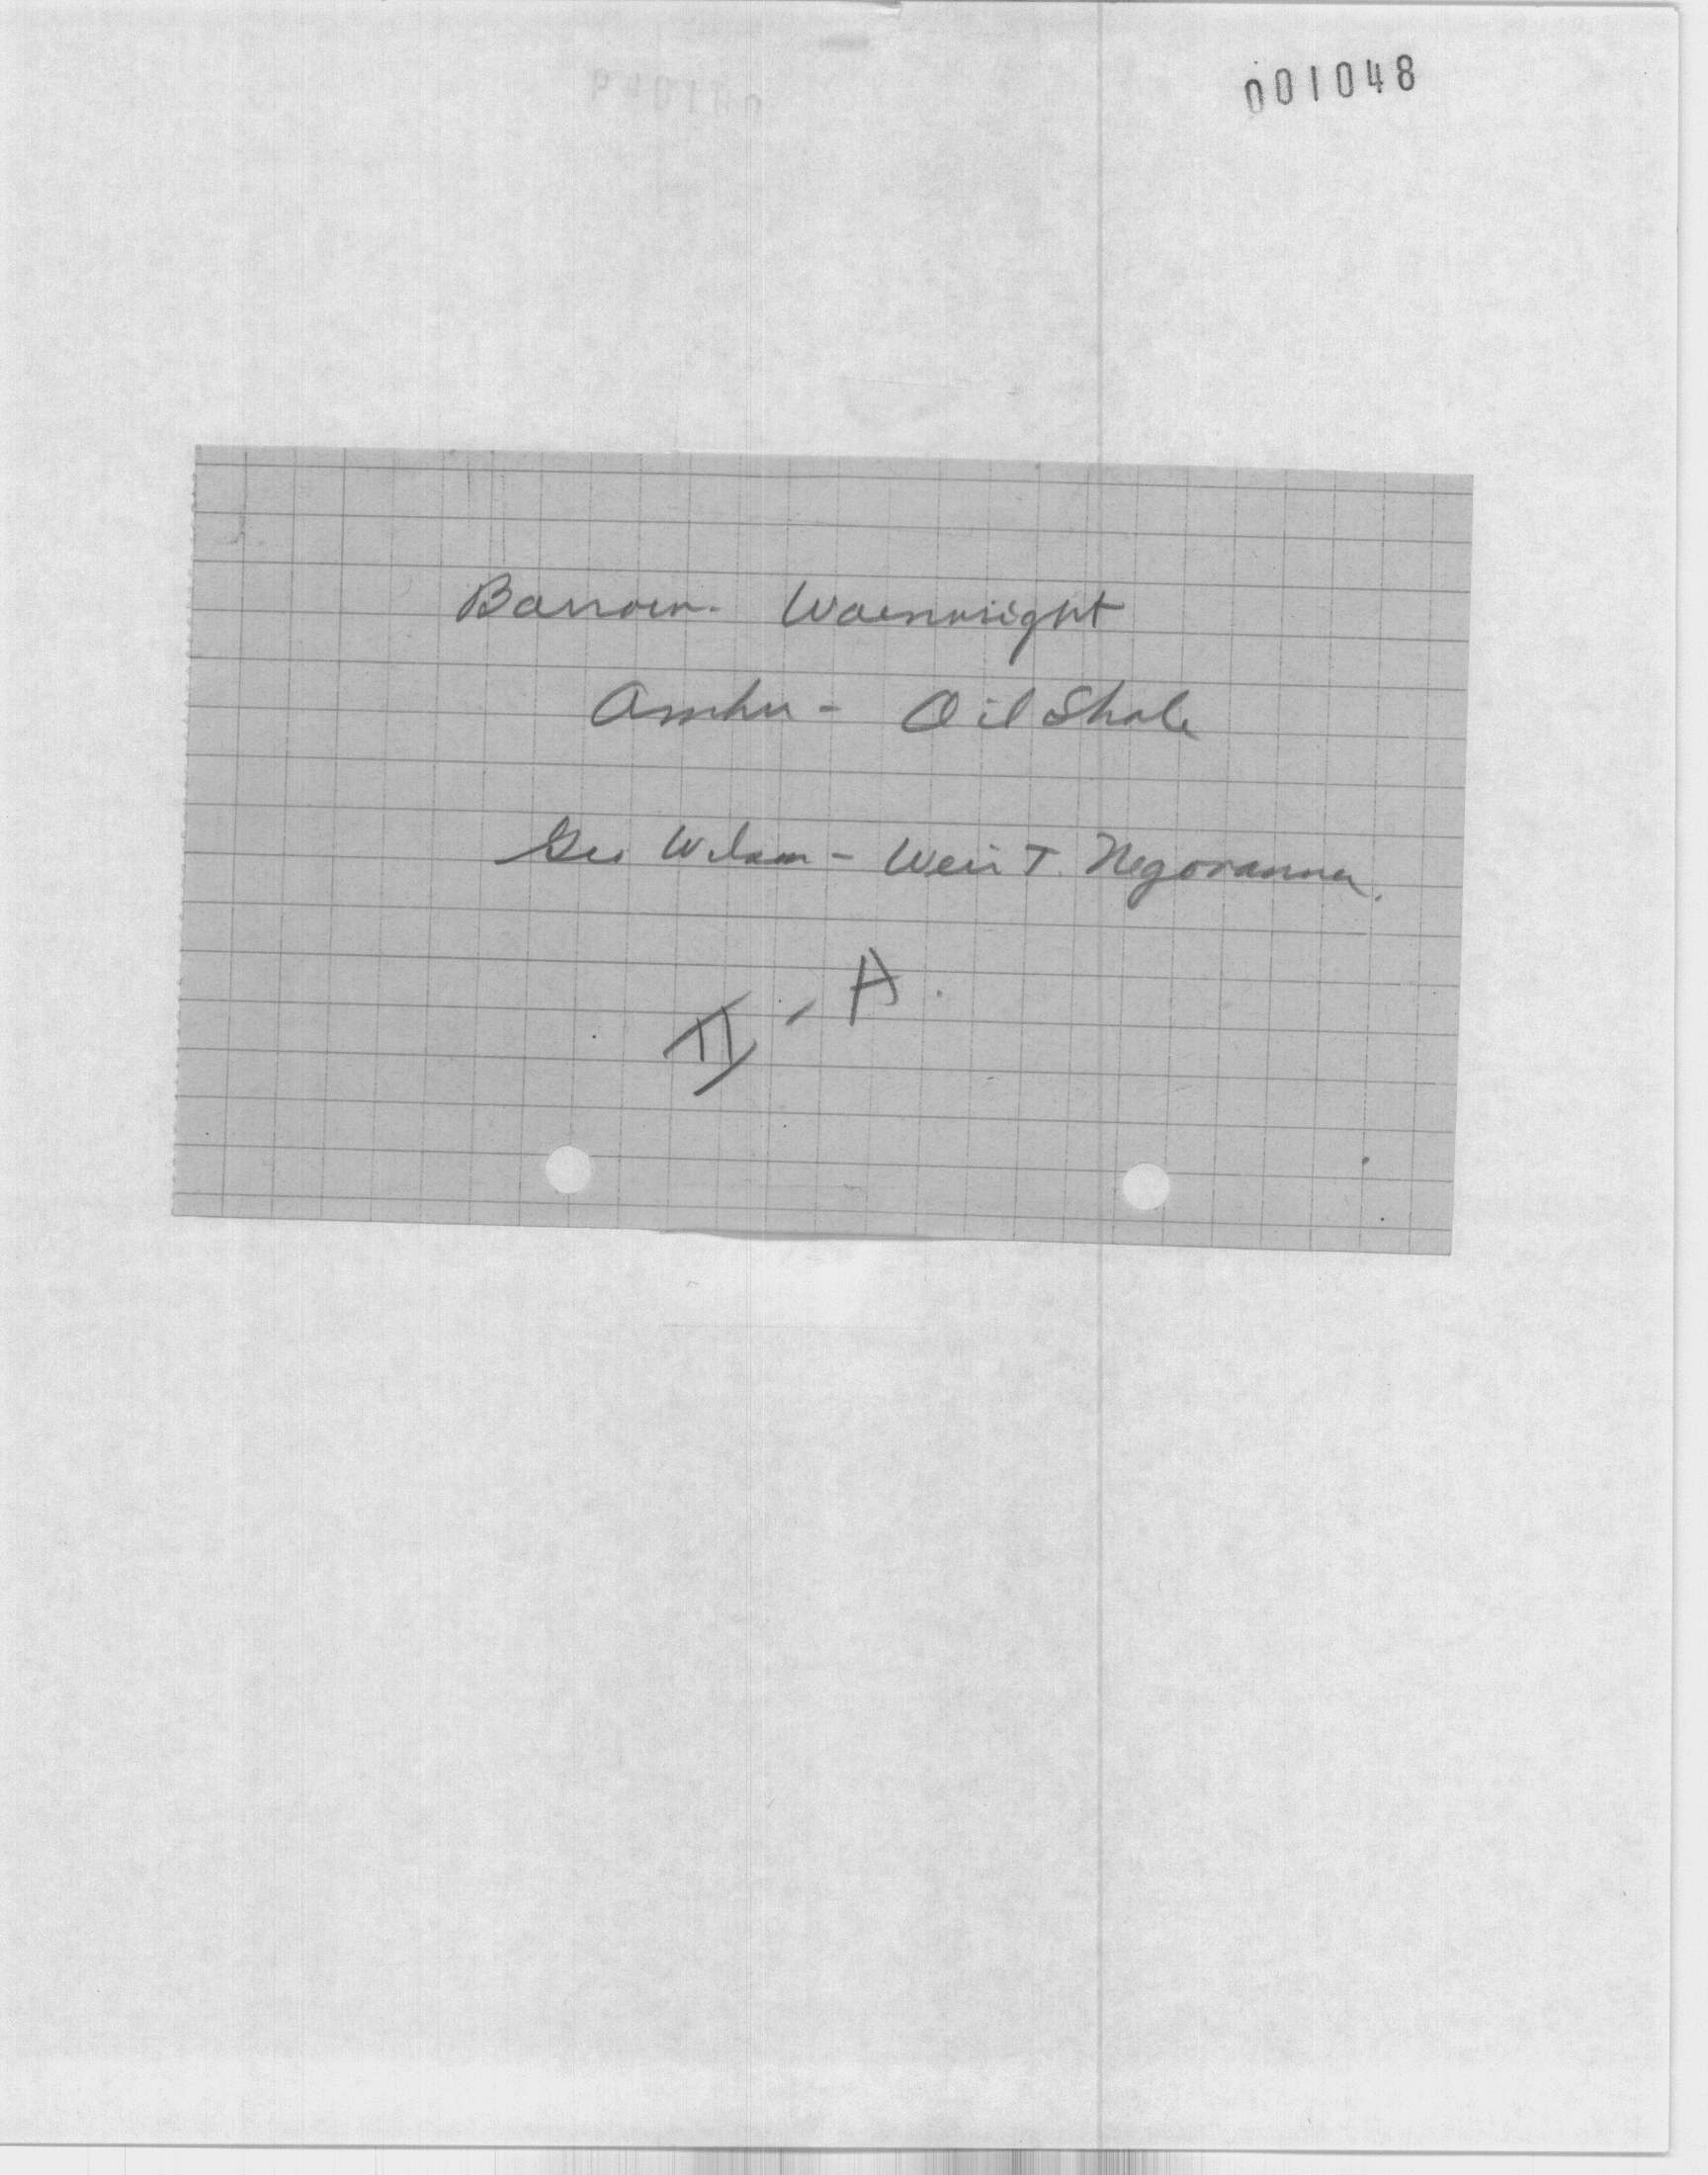 001048
Barrow - Wainwright
Amber - Oil Shale
Geo Wilson - Weir T. Negovanna.
II - A.